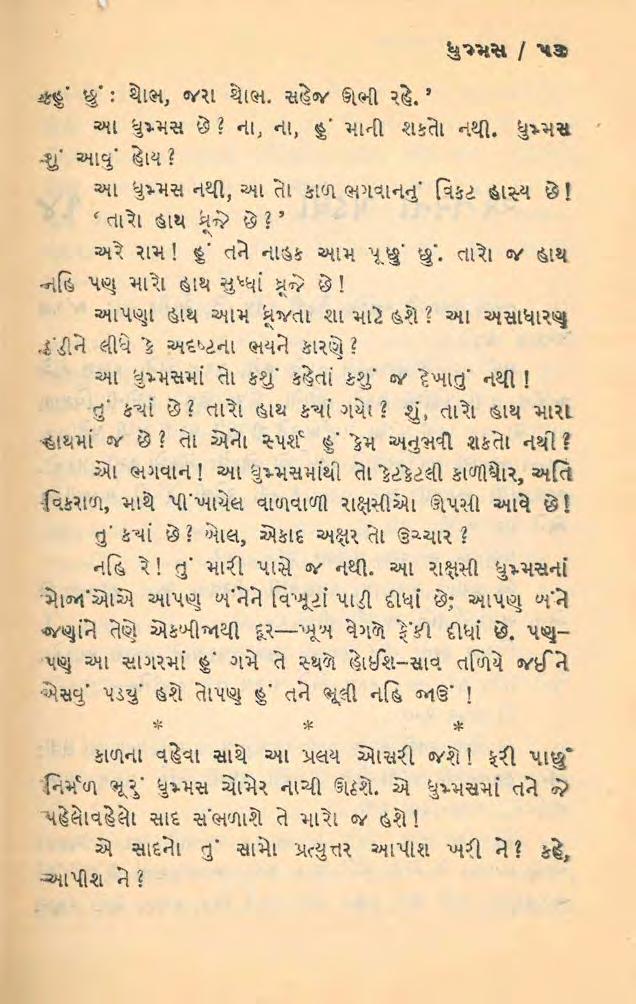 ધુમ્મસ / ૫૩
કહું છું : થોભ, જરા થોભ. સહેજ ઊભી રહે.’
આ ધુમ્મસ છે? ના, ના, હું માની શકતો નથી. ધુમ્મસ
શું આવું હોય ?
આ ધુમ્મસ નથી, આ તો કાળ ભગવાનનું વિકટ હાસ્ય છે!
‘તારો હાથ ધ્રૂજે છે?’
અરે રામ! હું તને નાહક આમ પૂછું છું. તારો જ હાથ
નહિ પણ મારો હાથ સુધ્ધાં ધ્રૂજે છે!
આપણા હાથ આમ ધ્રૂજતા શા માટે હશે? આ અસાધારણ
ઠંડીને લીધે કે અદષ્ટના ભયને કારણે?
આ ધુમ્મસમાં તો કશું કહેતાં કશું જ દેખાતું નથી!
તું કયાં છે? તારો હાથ કયાં ગયો? શું, તારો હાથ મારા
હાથમાં જ છે? તો એનો સ્પર્શ હું કેમ અનુભવી શકતો નથી?
ઓ ભગવાન! આ ધુમ્મસમાંથી તો કેટકેટલી કાળીઘોર, અતિ
વિકરાળ, માથે પીંખાયેલ વાળવાળી રાક્ષસીઓ ઊપસી આવે છે!
તું કયાં છે? બોલ, એકાદ અક્ષર તો ઉચ્ચાર ?
નહિ રે! તું મારી પાસે જ નથી. આ રાક્ષસી ધુમ્મસનાં
મોજાંઓએ આપણ બંનેને વિખૂટાં પાડી દીધાં છે; આપણ બંને
જણાંને તેણે એકબીજાથી દૂર—ખૂબ વેગળે ફેંકી દીધાં છે. પણ–
પણ આ સાગરમાં હું ગમે તે સ્થળે હોઈશ–સાવ તળિયે જઈને
એસવું પડયું હશે તોપણ હું તને ભૂલી નહિ જાઉં !
* * *
કાળના વહેવા સાથે આ પ્રલય ઓસરી જશે! ફરી પાછું
નિર્મળ ભૂરું ધુમ્મસ ચોમેર નાચી ઊઠશે. એ ધુમ્મસમાં તને જે
પહેલોવહેલો સાદ સંભળાશે તે મારો જ હશે!
એ સાદનો તું સામો પ્રત્યુત્તર આપીશ ખરી ને? કહે,
આપીશ ને?